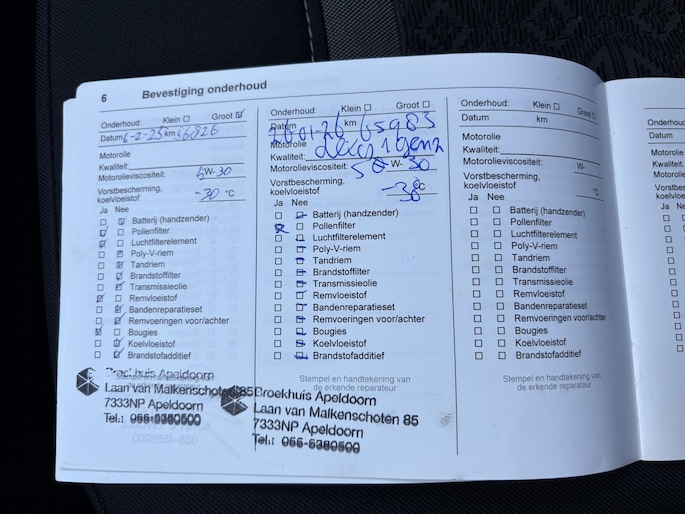 6 Bevestiging onderhoud
Onderhoud: Klein Groot
Datum 6-2-25 km 46826
Motorolie
Kwaliteit:
Motorolieviscositeit: 5W-30
Vorstbescherming,
koelvloeistof -30 °C
Ja Nee
Batterij (handzender)
Pollenfilter
Luchtfilterelement
Poly-V-riem
Tandriem
Brandstoffilter
Transmissieolie
Remvloeistof
Bandenreparatieset
Remvoeringen voor/achter
Bougies
Koelvloeistof
Brandstofadditief
Stempel en handtekening van
Broekhuis Apeldoorn
Laan van Malkenschoten 85
7333NP Apeldoorn
Tel.: 055-5380500
Onderhoud: Klein Groot
Datum 26-01-26 km 65983
Motorolie
Kwaliteit: dexos 1 gen2
Motorolieviscositeit: 5 W- 30
Vorstbescherming,
koelvloeistof -38 °C
Ja Nee
Batterij (handzender)
Pollenfilter
Luchtfilterelement
Poly-V-riem
Tandriem
Brandstoffilter
Transmissieolie
Remvloeistof
Bandenreparatieset
Remvoeringen voor/achter
Bougies
Koelvloeistof
Brandstofadditief
Stempel en handtekening van
de erkende reparateur
Broekhuis Apeldoorn
Laan van Malkenschoten 85
7333NP Apeldoorn
Tel.: 055-5380500
Onderhoud: Klein Groot
Datum km
Motorolie
Kwaliteit:
Motorolieviscositeit: W-
Vorstbescherming,
koelvloeistof °C
Ja Nee
Batterij (handzender)
Pollenfilter
Luchtfilterelement
Poly-V-riem
Tandriem
Brandstoffilter
Transmissieolie
Remvloeistof
Bandenreparatieset
Remvoeringen voor/achter
Bougies
Koelvloeistof
Brandstofadditief
Stempel en handtekening van
de erkende reparateur
Datum
Motorolie
Kwaliteit
Ja Ne